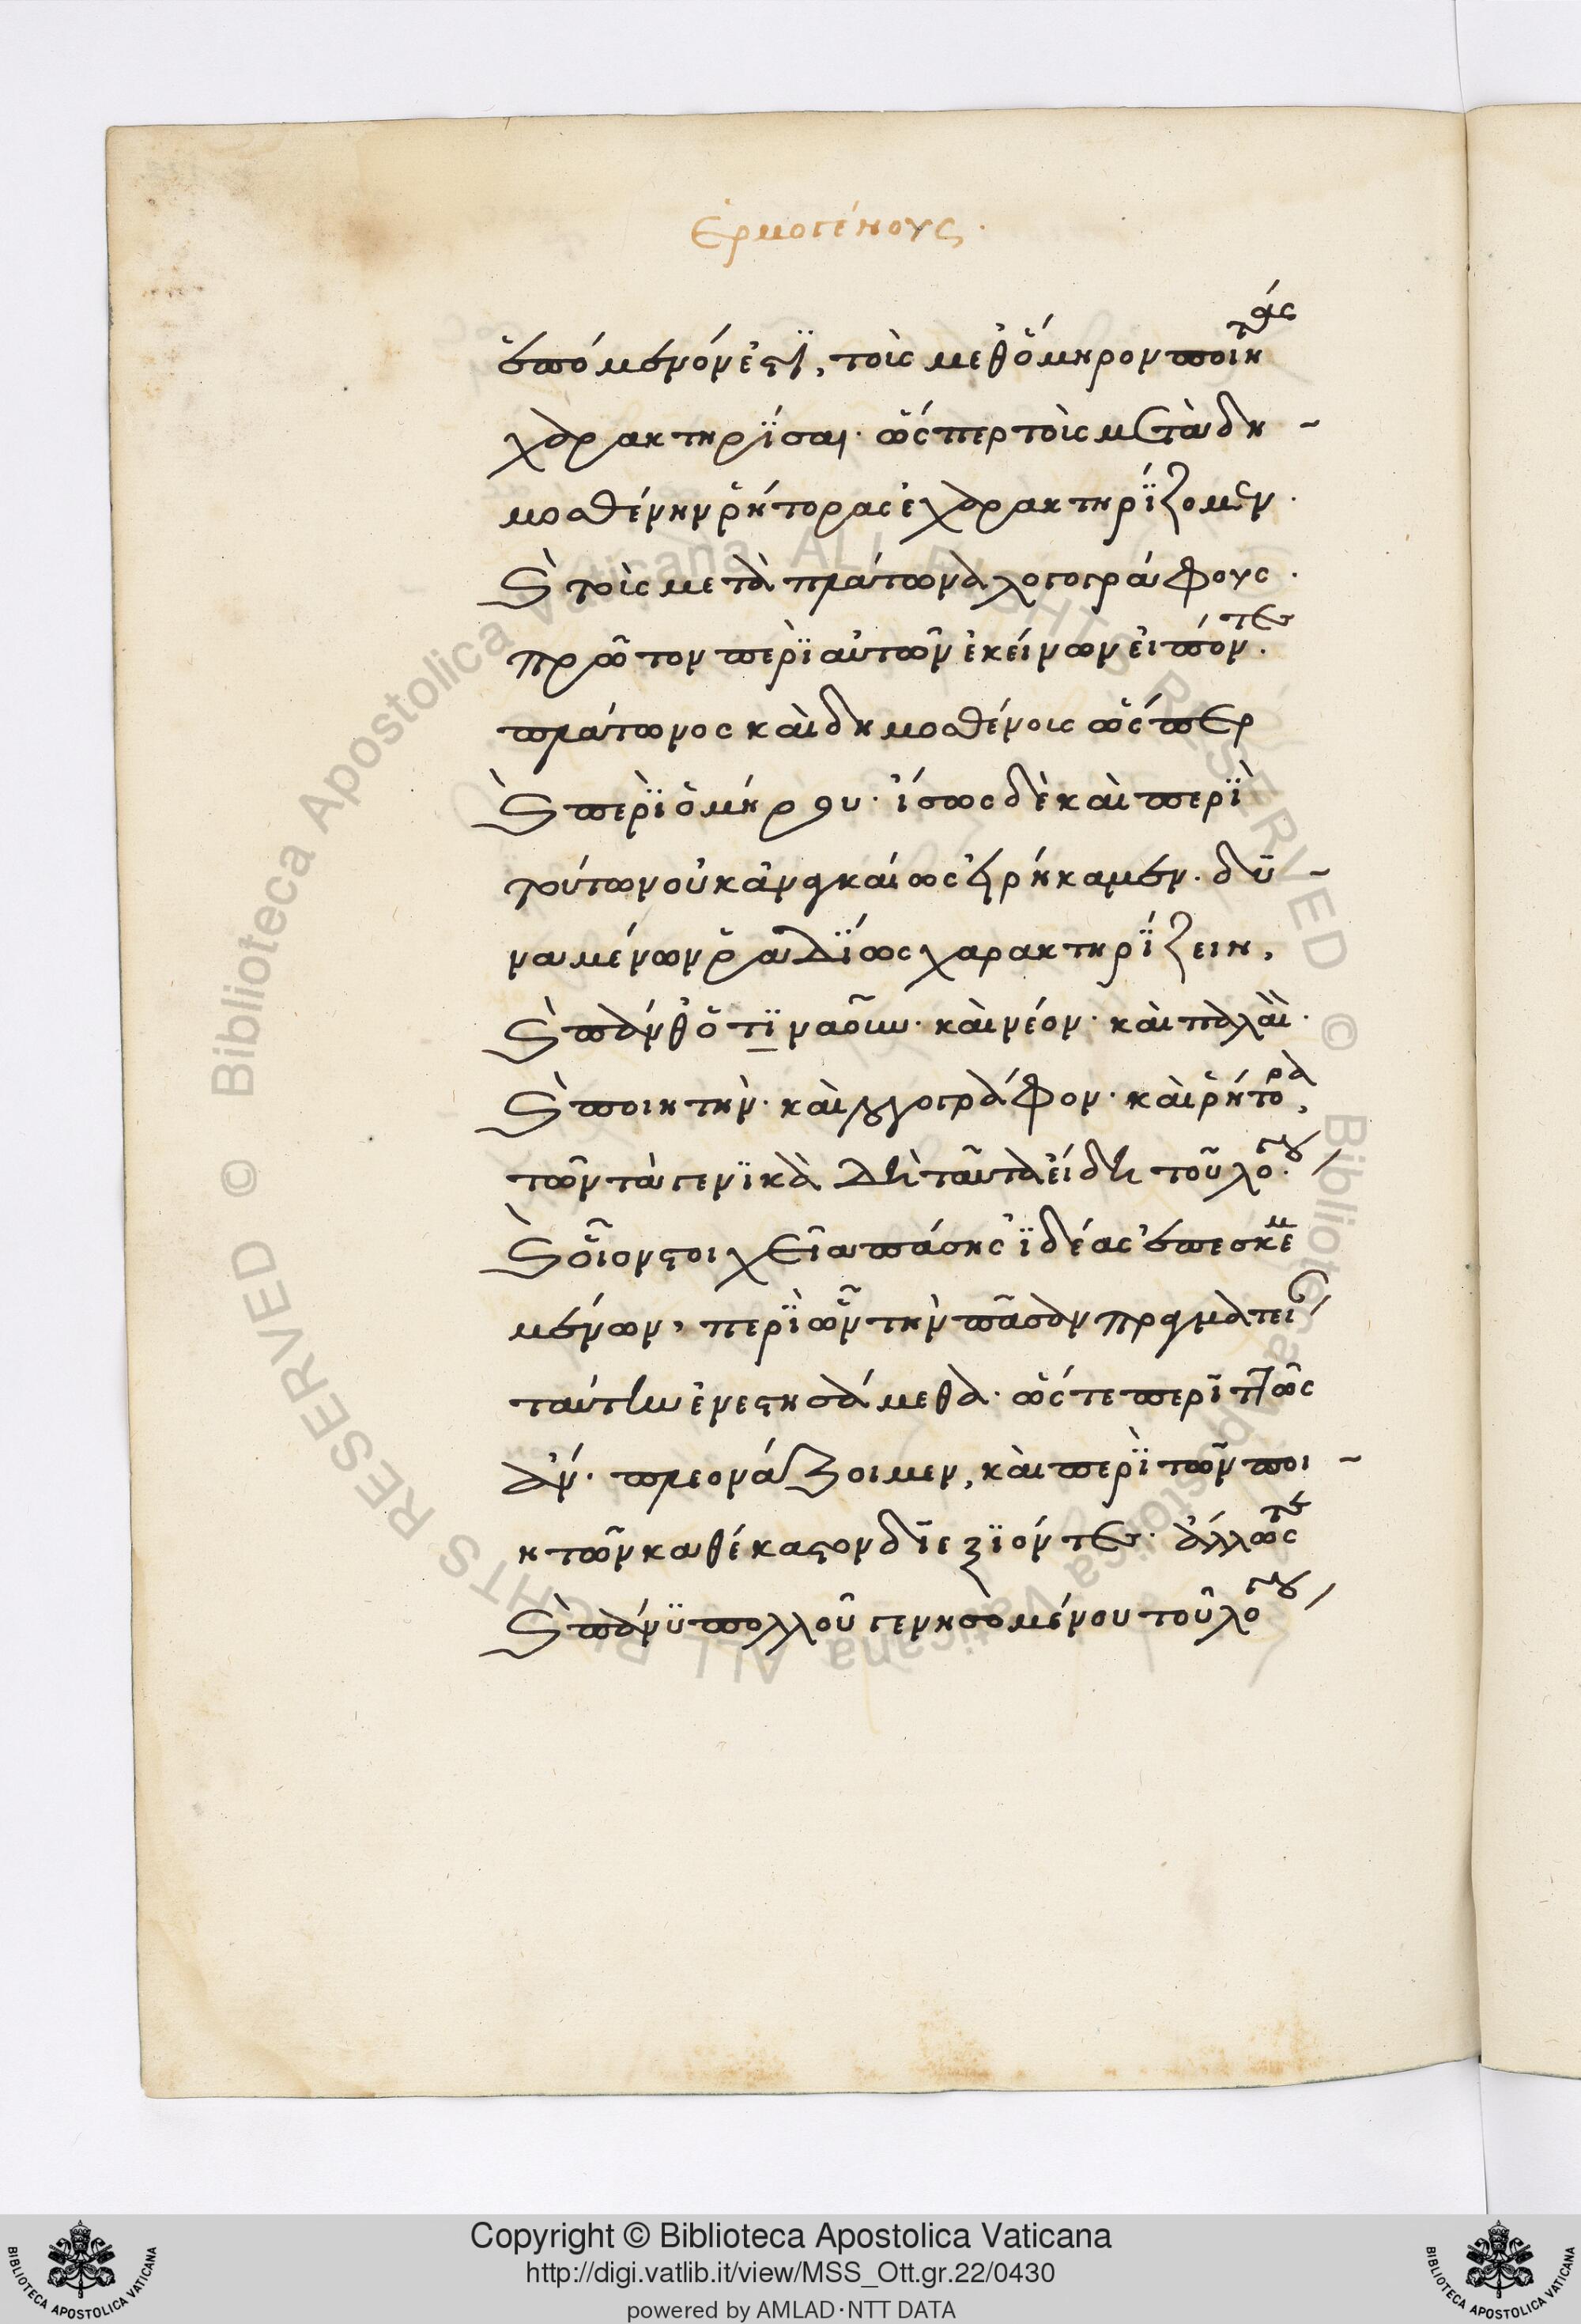 ἑρμογένους.
ἑπόμενόν ἐστι, τοὺς μεθ' ὅμηρον ποιητὰς
χαρακτηρίσαι. ὥσπερ τοὺς μετὰ δη-
μοσθένην ῥήτορας ἐχαρακτηρίζομεν.
καὶ τοὺς μετὰ πλάτωνα λογογράφους.
πρῶτον περὶ αὐτῶν ἐκείνων εἰπόντες.
πλάτωνος καὶ δημοσθένους ὥσπερ
καὶ περὶ ὁμήρου. ἴσως δὲ καὶ περὶ
τούτων οὐκ ἀναγκαίως εἰρήκαμεν. δυ-
ναμένων ῥαδίως χαρακτηρίζειν,
καὶ πάνθ' ὅτιναοῦν. καὶ νέον. καὶ παλαι.
καὶ ποιητὴν. καὶ λογογράφον. καὶ ῥήτορα,
τῶν τὰ γενικὰ δὴ ταῦτα εἴδη τοῦ λόγου.
καὶ οἷον στοιχεῖα πάσης ἰδέας ἐπεσκεμ
μένων, περὶ ὧν τὴν πᾶσαν πραγματεί
ταύτην ἐνεστησάμεθα. ὥστε περιττῶς
ἂν. πλεονάζοιμεν, καὶ περὶ τῶν ποι-
ητῶν καθ' έκαστον διεξιόντες. ἄλλως τε
καὶ πάνυ πολλοῦ γενησομένου τοῦ λόγου
Copyright © Biblioteca Apostolica Vaticana
http://digi.vatlib.it/view/MSS_Ott.gr.22/0430
powered by AMLAD·NTT DATA